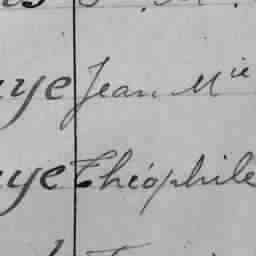 ye Jean Mie
ye Théophile